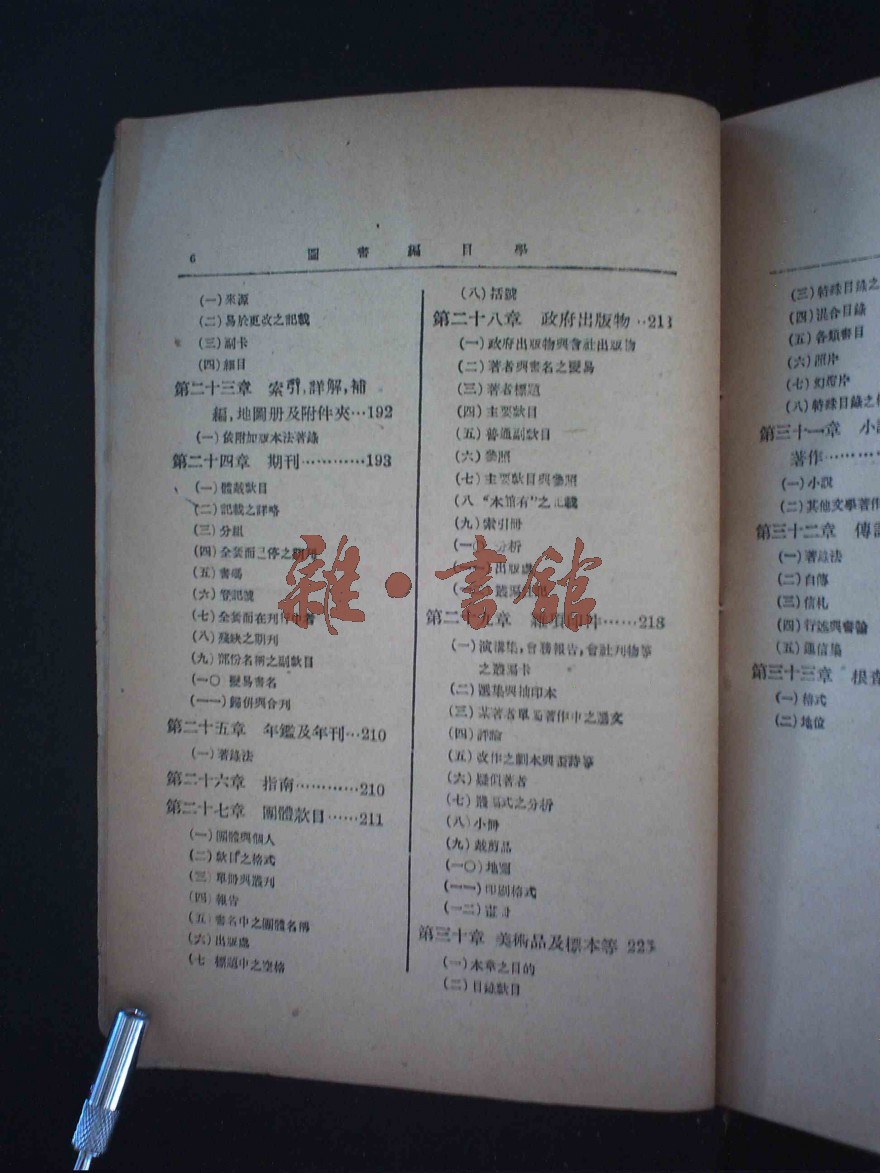 6 圖書編目學
(一)來源
(二)易於更改之記載
(三)副卡
(四)細目
第二十三章 索引,詳解,補
編,地圖册及附件夾…192
(一)依附加版本法著錄
第二十四章 期刊…………193
(一)體裁款目
(二)記載之詳略
(三)分組
(四)全套而已停之期刊
(五)書碼
(六)登記號
(七)全套而在刊行中者
(八)殘缺之期刊
(九)部份名稱之副款目
(一〇)擬易書名
(一一)歸併與合刊
第二十五章 年鑑及年刊…210
(一)著錄法
第二十六章 指南…………210
第二十七章 團體款目……211
(一)團體與個人
(二)款目之格式
(三)單冊與叢刊
(四)報告
(五)書名中之團體名稱
(六)出版處
(七 標題中之空格
(八)括號
第二十八章 政府出版物‥213
(一)政府出版物與會社出版物
(二)著者與書名之擬易
(三)著者標題
(四)主要款目
(五)普通副款目
(六)參照
(七)主要款目與參照
(八 “本館有”之記載
(九)索引冊
分析
出版處
第二十九章 ……218
(一)演講集,會務報告,會社刊物等
之叢屬卡
(二)匯集與抽印本
(三)某著者單篇著作中之選文
(四)評論
(五)改作之劇本與詩等
(六)疑似著者
(七)式之分析
(八)小冊
(九)裁剪品
(一〇)地圖
(一一)印刷格式
(一二)畫
第三十章 美術品及標本等 225
(一)本章之目的
(二)目錄款目
雜·書館
(三)特殊目錄之
(四)混合目錄
(五)各類書目
(六)照片
(七)幻燈片
(八)特殊目錄之
第三十一章 小說
著作…………
(一)小說
(二)其他文學著作
第三十二章 傳記
(一)著錄法
(二)自傳
(三)信札
(四)行述與書論
(五)通信集
第三十三章 根
(一)格式
(二)地位